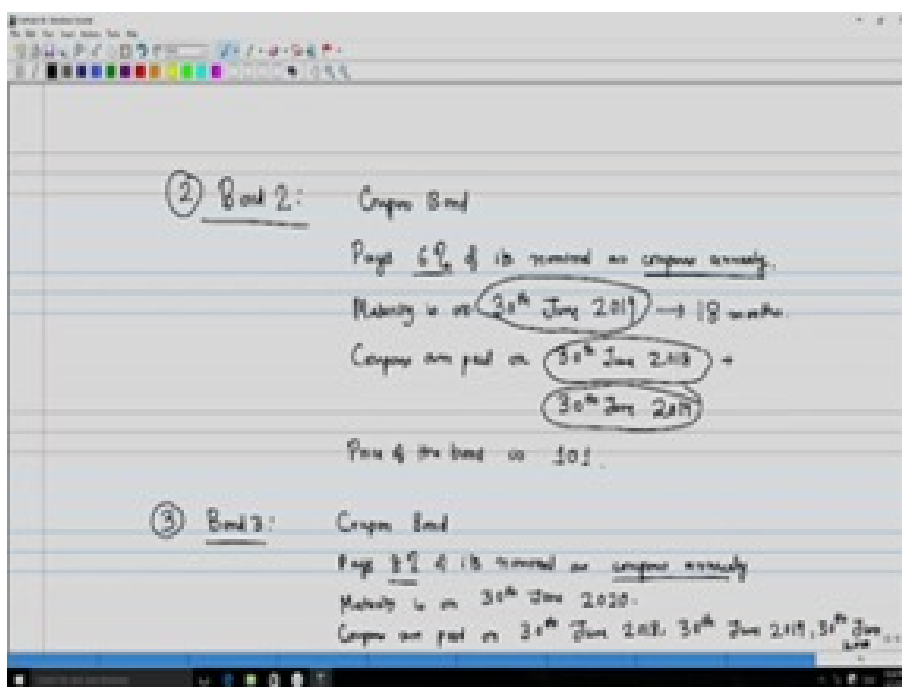 ② Bond 2: Coupon Bond
Pays 6% of its nominal as coupon annually.
Maturity is on 30th June 2019 → 18 months.
Coupons are paid on 30th June 2018 +
30th June 2019
Price of the bond is 101.
③ Bond 3: Coupon Bond
Pays 8% of its nominal as coupon annually
Maturity is on 30th June 2020.
Coupons are paid on 30th June 2018, 30th June 2019, 30th June